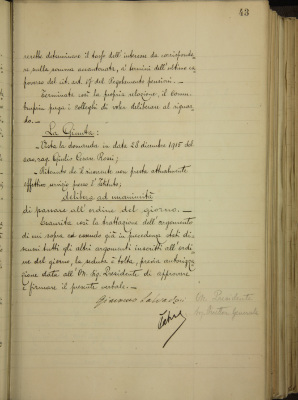 43
scrible determinare il tasso dell'interesse da corrisponde-
re sulla somma accantonata, ai termini dell'ultimo ca-
poverso del cit. art. 67 del Regolamento pensioni. —
Terminata così la propria relazione, il Comm.
prega i colleghi di voler deliberare al riguar-
do. —
La Giunta:
— Vista la domanda in data 28 dicembre 1915 del
cav. rag. Giulio Cesare Rossi;
— Ritenuto che il ricorrente non presta attualmente
effettivo servizio presso l'Istituto;
delibera ad unanimità
di passare all'ordine del giorno. —
Esaurita così la trattazione dell'argomento
di cui sopra ed essendo già in precedenza stati di-
scussi tutti gli altri argomenti inscritti all'ordi-
ne del giorno, la seduta è tolta, previa autorizza-
zione data all'On. Sig. Presidente di approvare
e firmare il presente verbale. —
Giacomo Salvadori
On. Presidente